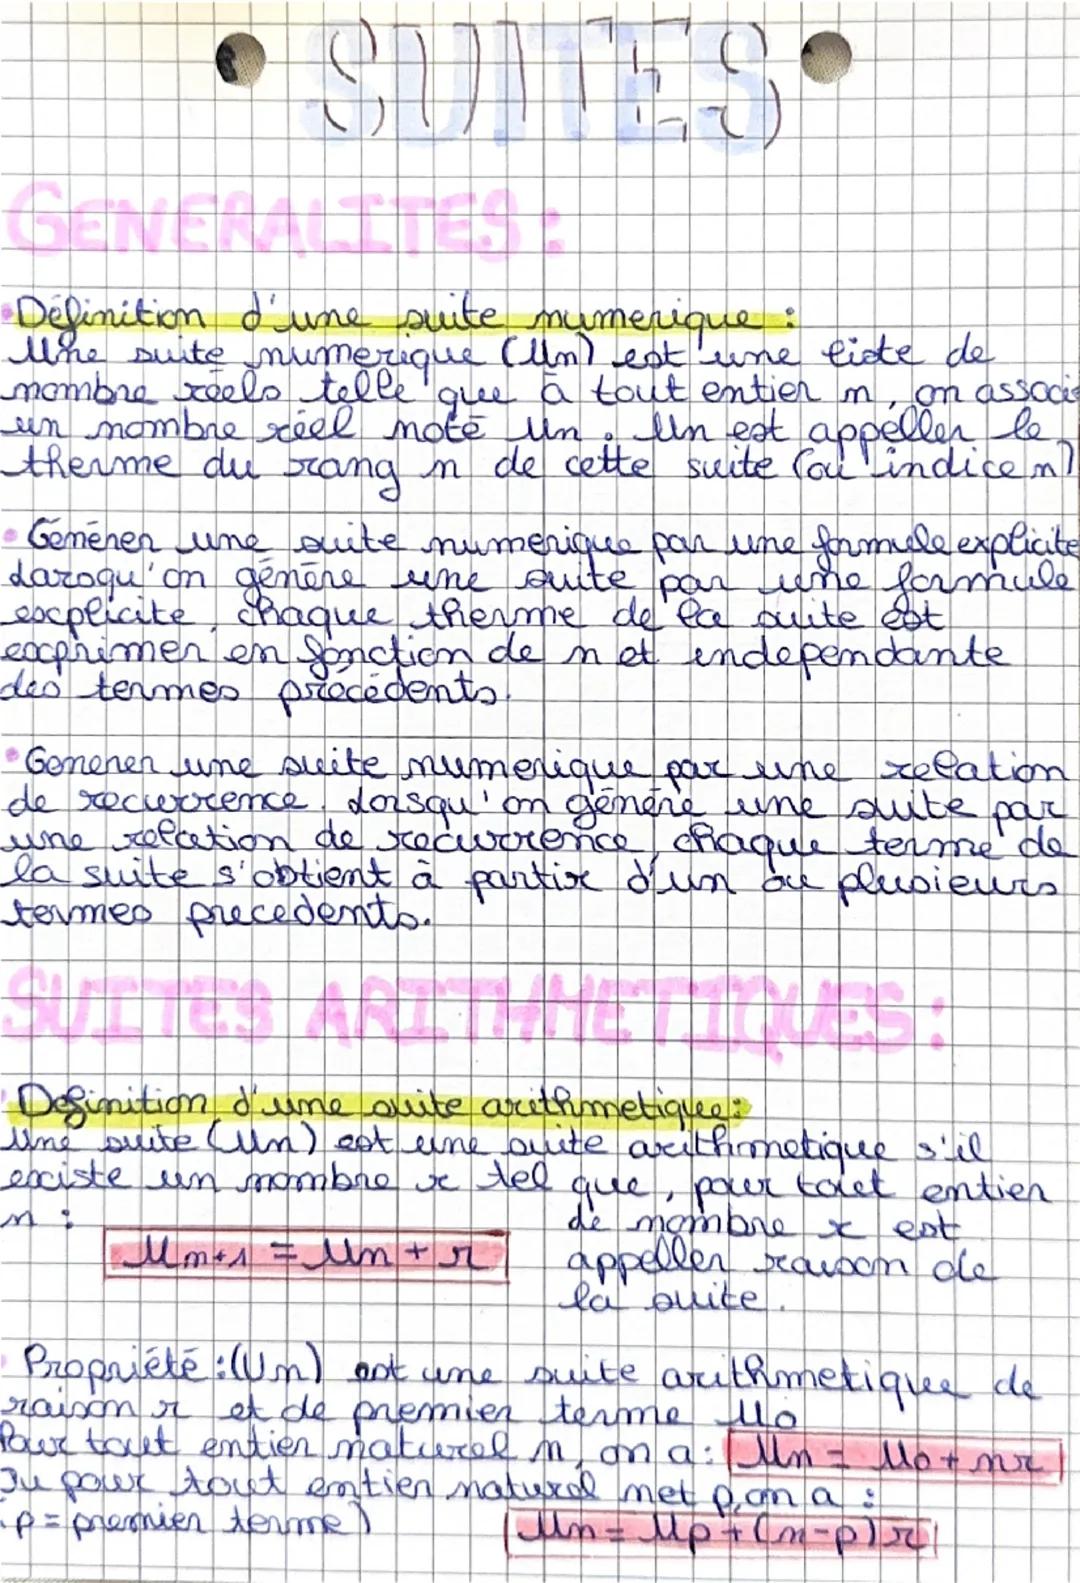 SUITES
GENERALITES :
Définition d'une suite numerique :
Une suite numerique (Un) est une liste de
nombre réels telle que à tout entier n, on associe
un nombre réel noté Un. Un est appeller le
therme du rang n de cette suite (ou indice n)
Génerer une suite numerique par une formule explicite
Lorsqu'on génère une suite par une formule
explicite, chaque therme de la suite est
exprimer en fonction de n et independante
des termes précédents.
Generer une suite numerique par une relation
de recurrence. Lorsqu'on génère une suite par
une relation de recurrence, chaque terme de
la suite s'obtient à partir d'un ou plusieurs
termes precedents.
SUITES ARITHMETIQUES :
Definition d'une suite arithmetique:
Une suite (Un) est une suite arithmetique s'il
existe un nombre r tel que, pour tout entier
n :
Un+1 = Un + r
de nombre r est
appeller raison de
la suite.
Propriété : (Un) est une suite arithmetique de
raison r et de premier terme U0
Pour tout entier naturel n, on a : Un = U0 + nr
Ou pour tout entier naturel n et p, on a :
p = premier terme)
Un = Up + (n-p) r